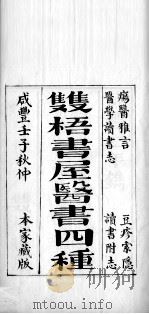 瘍醫雅言
豆疹索隱
醫學讀書志
讀書附志
雙梧書屋醫書四種
咸豐壬子秋仲
本家藏版